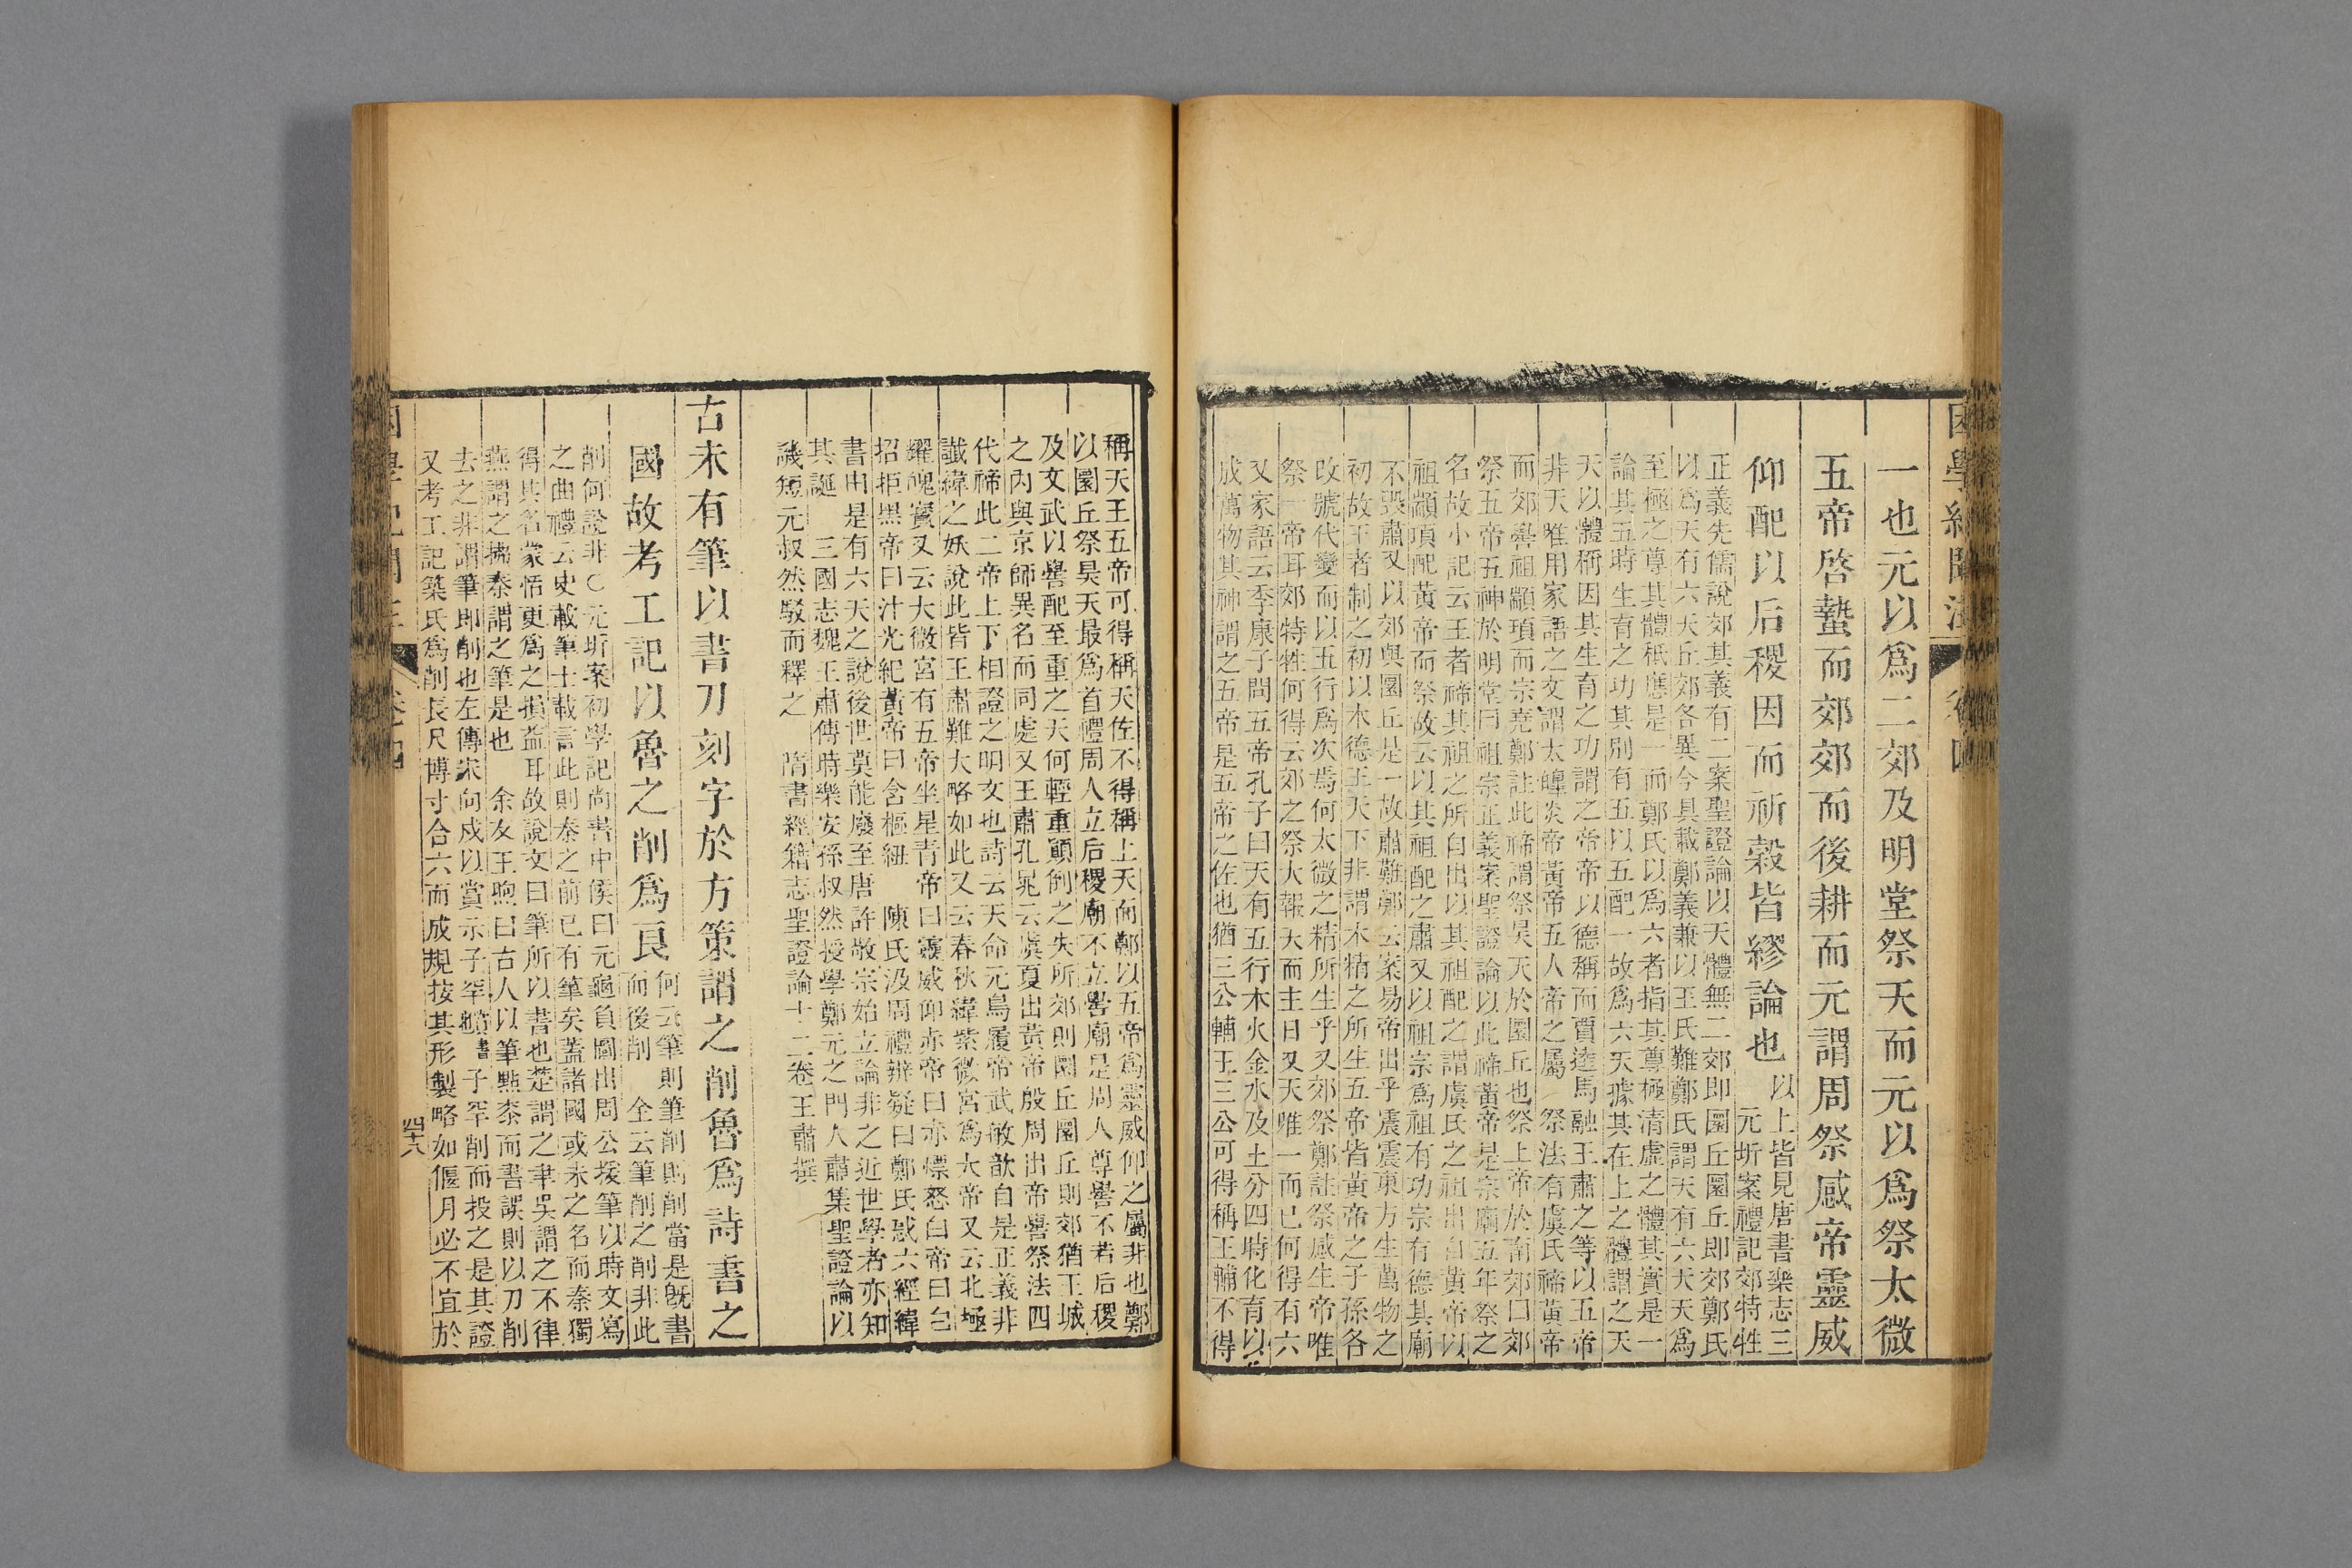 一也元以爲二郊及明堂祭天而元以爲祭太微
五帝啓蟄而郊郊而後耕而元謂周祭感帝靈威
仰配以后稷因而祈穀皆繆論也
以上皆見唐書樂志三
元圻案禮記郊特牲
正義先儒說郊其義有二案聖證論以天體無二郊卽圜丘圜丘卽郊鄭氏
以爲天有六天丘郊各異今具載鄭義兼以王氏難鄭氏謂天有六天天爲
至極之尊其體秪應是一而鄭氏以爲六者指其尊極淸虛之體其實是一
論其五時生育之功其別有五以五配一故爲六天據其在上之體謂之天
天以體稱因其生育之功謂之帝帝以德稱而賈逵馬融王肅之等以五帝
非天唯用家語之文謂太皥炎帝黃帝五人帝之屬 祭法有虞氏禘黃帝
而郊嚳祖顓頊而宗堯鄭註此禘謂祭昊天於圜丘也祭上帝於南郊曰郊
祭五帝五神於明堂曰祖宗正義案聖證論以此禘黃帝是宗廟五年祭之
名故小記云王者禘其祖之所自出以其祖配之謂虞氏之祖出自黃帝以
祖顓頊配黃帝而祭故云以其祖配之肅又以祖宗爲祖有功宗有德其廟
不毀肅又以郊與圜丘是一故肅難鄭云案易帝出乎震震東方生萬物之
初故王者制之初以木德王天下非謂木精之所生五帝皆黃帝之子孫各
改號代變而以五行爲次焉何太微之精所生乎又郊祭鄭註祭感生帝唯
祭一帝耳郊特牲何得云郊之祭大報天而主日又天唯一而已何得有六
又家語云季康子問五帝孔子曰天有五行木火金水及土分四時化育以
成萬物其神謂之五帝是五帝之佐也猶三公輔王三公可得稱王輔不得
稱天王五帝可得稱天佐不得稱上天而鄭以五帝爲靈威仰之屬非也鄭
以圜丘祭昊天最爲首禮周人立后稷廟不立嚳廟是周人尊嚳不若后稷
及文武以嚳配至重之天何輕重顚倒之失所郊則圜丘圜丘則郊猶王城
之內與京師異名而同處又王肅孔晁云虞夏出黃帝殷周出帝嚳祭法四
代禘此二帝上下相證之明文也詩云天命元鳥履帝武敏歆自是正義非
讖緯之妖說此皆王肅難大略如此又云春秋緯紫微宮爲大帝又云北極
耀魄寶又云大微宮有五帝坐星靑帝曰靈威仰赤帝曰赤熛怒白帝曰白
招拒黑帝曰汁光紀黃帝曰含樞紐 陳氏汲周禮辨疑曰鄭氏惑六經緯
書由是有六天之說後世莫能廢至唐許敬宗始立論非之近世學者亦知
其誕 三國志魏王肅傳時樂安孫叔然授學鄭元之門人肅集聖證論以
譏短元叔然駁而釋之 隋書經籍志聖證論十二卷王肅撰
古未有筆以書刀刻字於方策謂之削魯爲詩書之
國故考工記以魯之削爲良
何云筆則筆削則削當是旣書
而後削 全云筆削之削非此
削何說非○元圻案初學記尚書中候曰元龜負圖出周公援筆以時文寫
之曲禮云史載筆士載言此則秦之前已有筆矣蓋諸國或未之名而秦獨
得其名蒙恬更爲之損益耳故說文曰筆所以書也楚謂之聿吳謂之不律
燕謂之拂秦謂之筆是也 余友王煦曰古人以筆點桼而書誤則以刀削
去之非謂筆卽削也左傳宋向戌以賞示子罕子罕削而投之是其證
又考工記築氏爲削長尺博寸合六而成規按其形製略如偃月必不宜於
四十八